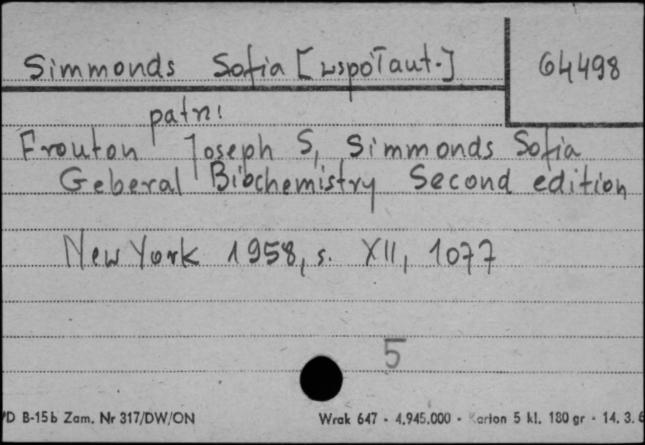 Simmonds Sofia [współaut.] 64498
patrz:
Frouton Joseph S, Simmonds Sofia
Geberal Biochemistry Second edition
New York 1958, s. XII, 1077
5
D B-15b Zam. Nr 317/DW/ON Wrak 647 - 4.945.000 - Karton 5 kl. 180 gr - 14. 3. 6